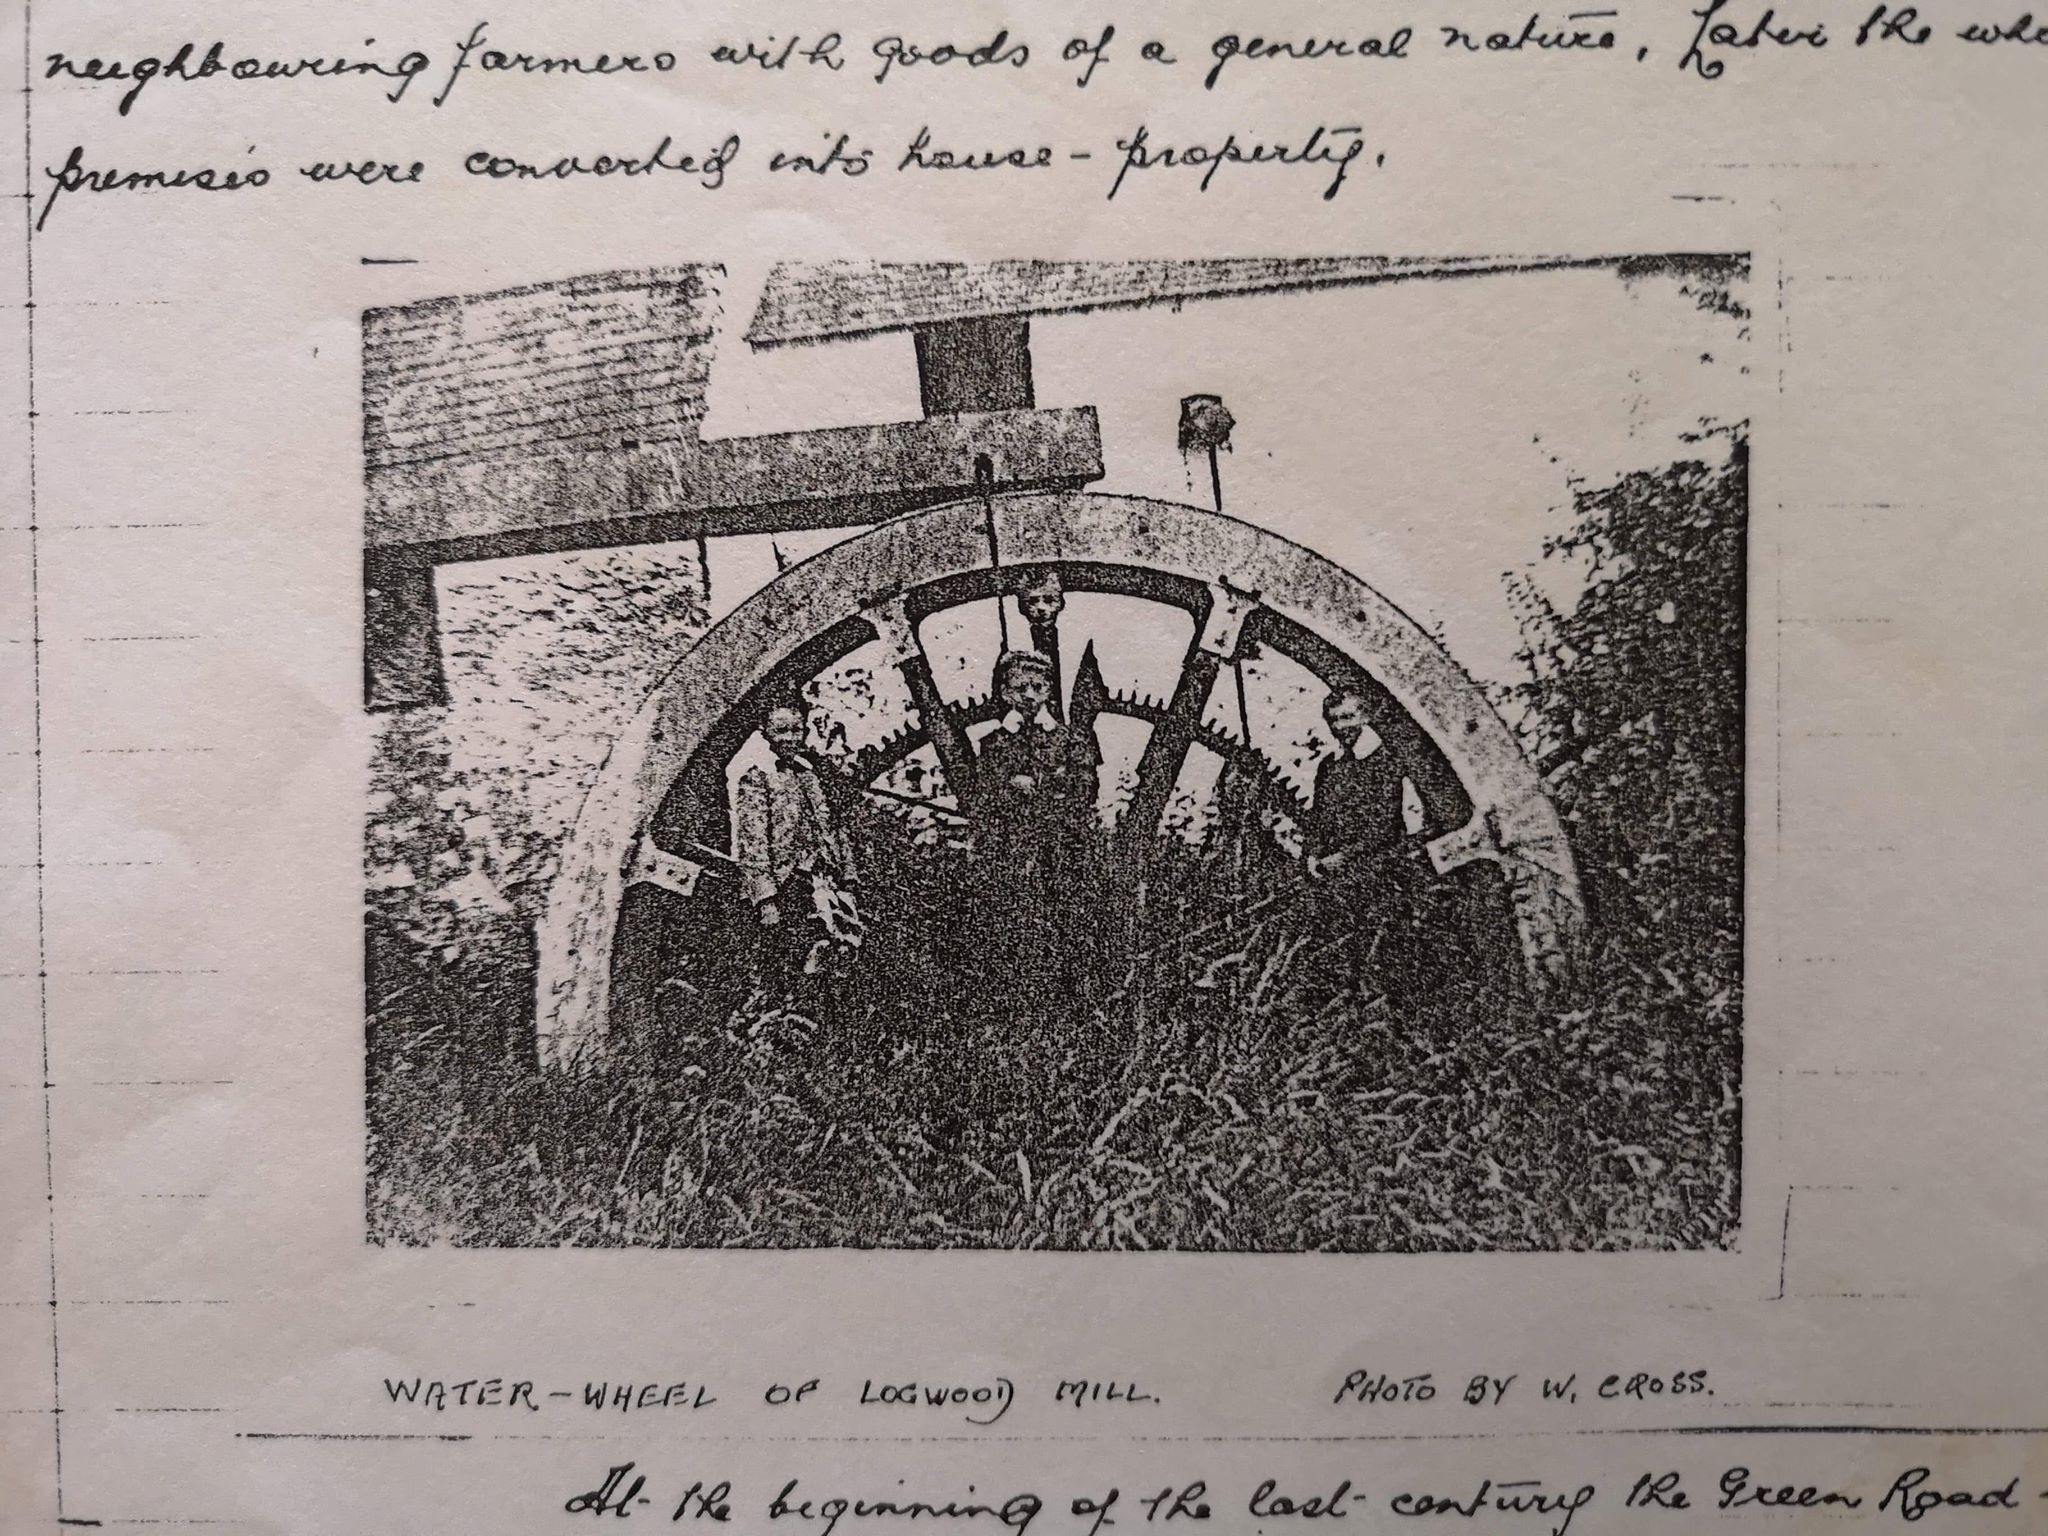 neighbouring farmers with goods of a general nature. Later the
premises were converted into house-property.
WATER-WHEEL OF LOGWOOD MILL. PHOTO BY W. CROSS.
At the beginning of the last century the Green Road-